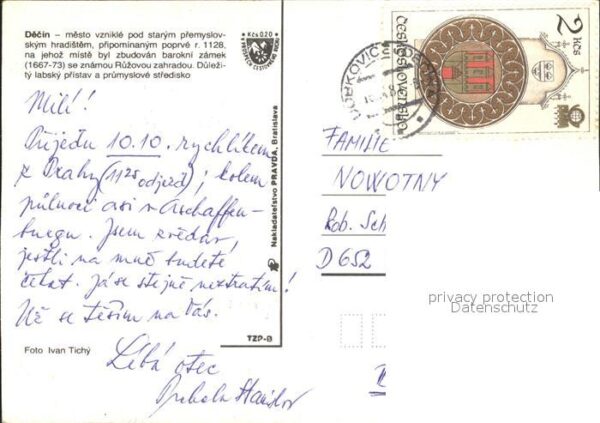 Děčín – město vzniklé pod starým přemyslov-
ským hradištěm, připomínaným poprvé r. 1128,
na jehož místě byl zbudován barokní zámek
(1667-73) se známou Růžovou zahradou. Důleži-
tý labský přístav a průmyslové středisko
Kčs 0,20
Milí!
Přijedu 10.10. rychlíkem
z Prahy (11²⁵ odjezd); kolem
půlnoci asi v Aschaffen-
burgu. Jsem zvědav,
jestli na mně budete
čekat. Já se stejně neztratím!
Už se těším na Vás.
Líbá otec
Foto Ivan Tichý
TZP-B
Nakladatelství PRAVDA, Bratislava
ČESKOSLOVENSKO
2 Kčs
FAMILIE
NOWOTNY
Rob. Sch
D 652
privacy protection
Datenschutz